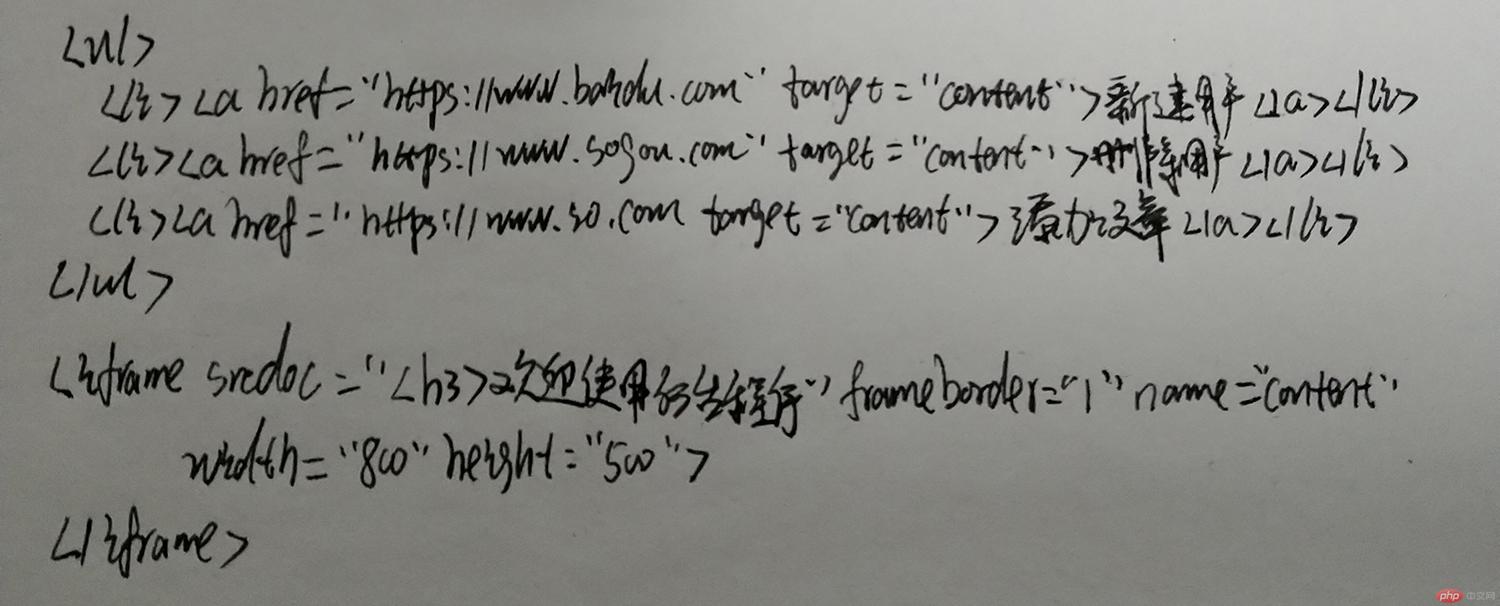 <ul>
<li><a href="https://www.baidu.com" target="content">新建用户</a></li>
<li><a href="https://www.sogou.com" target="content">删除用户</a></li>
<li><a href="https://www.so.com target="content">添加文章</a></li>
</ul>
<iframe srcdoc="<h3>欢迎使用后台程序" frameborder="1" name="content"
width="800" height="500">
</iframe>
php 中文网